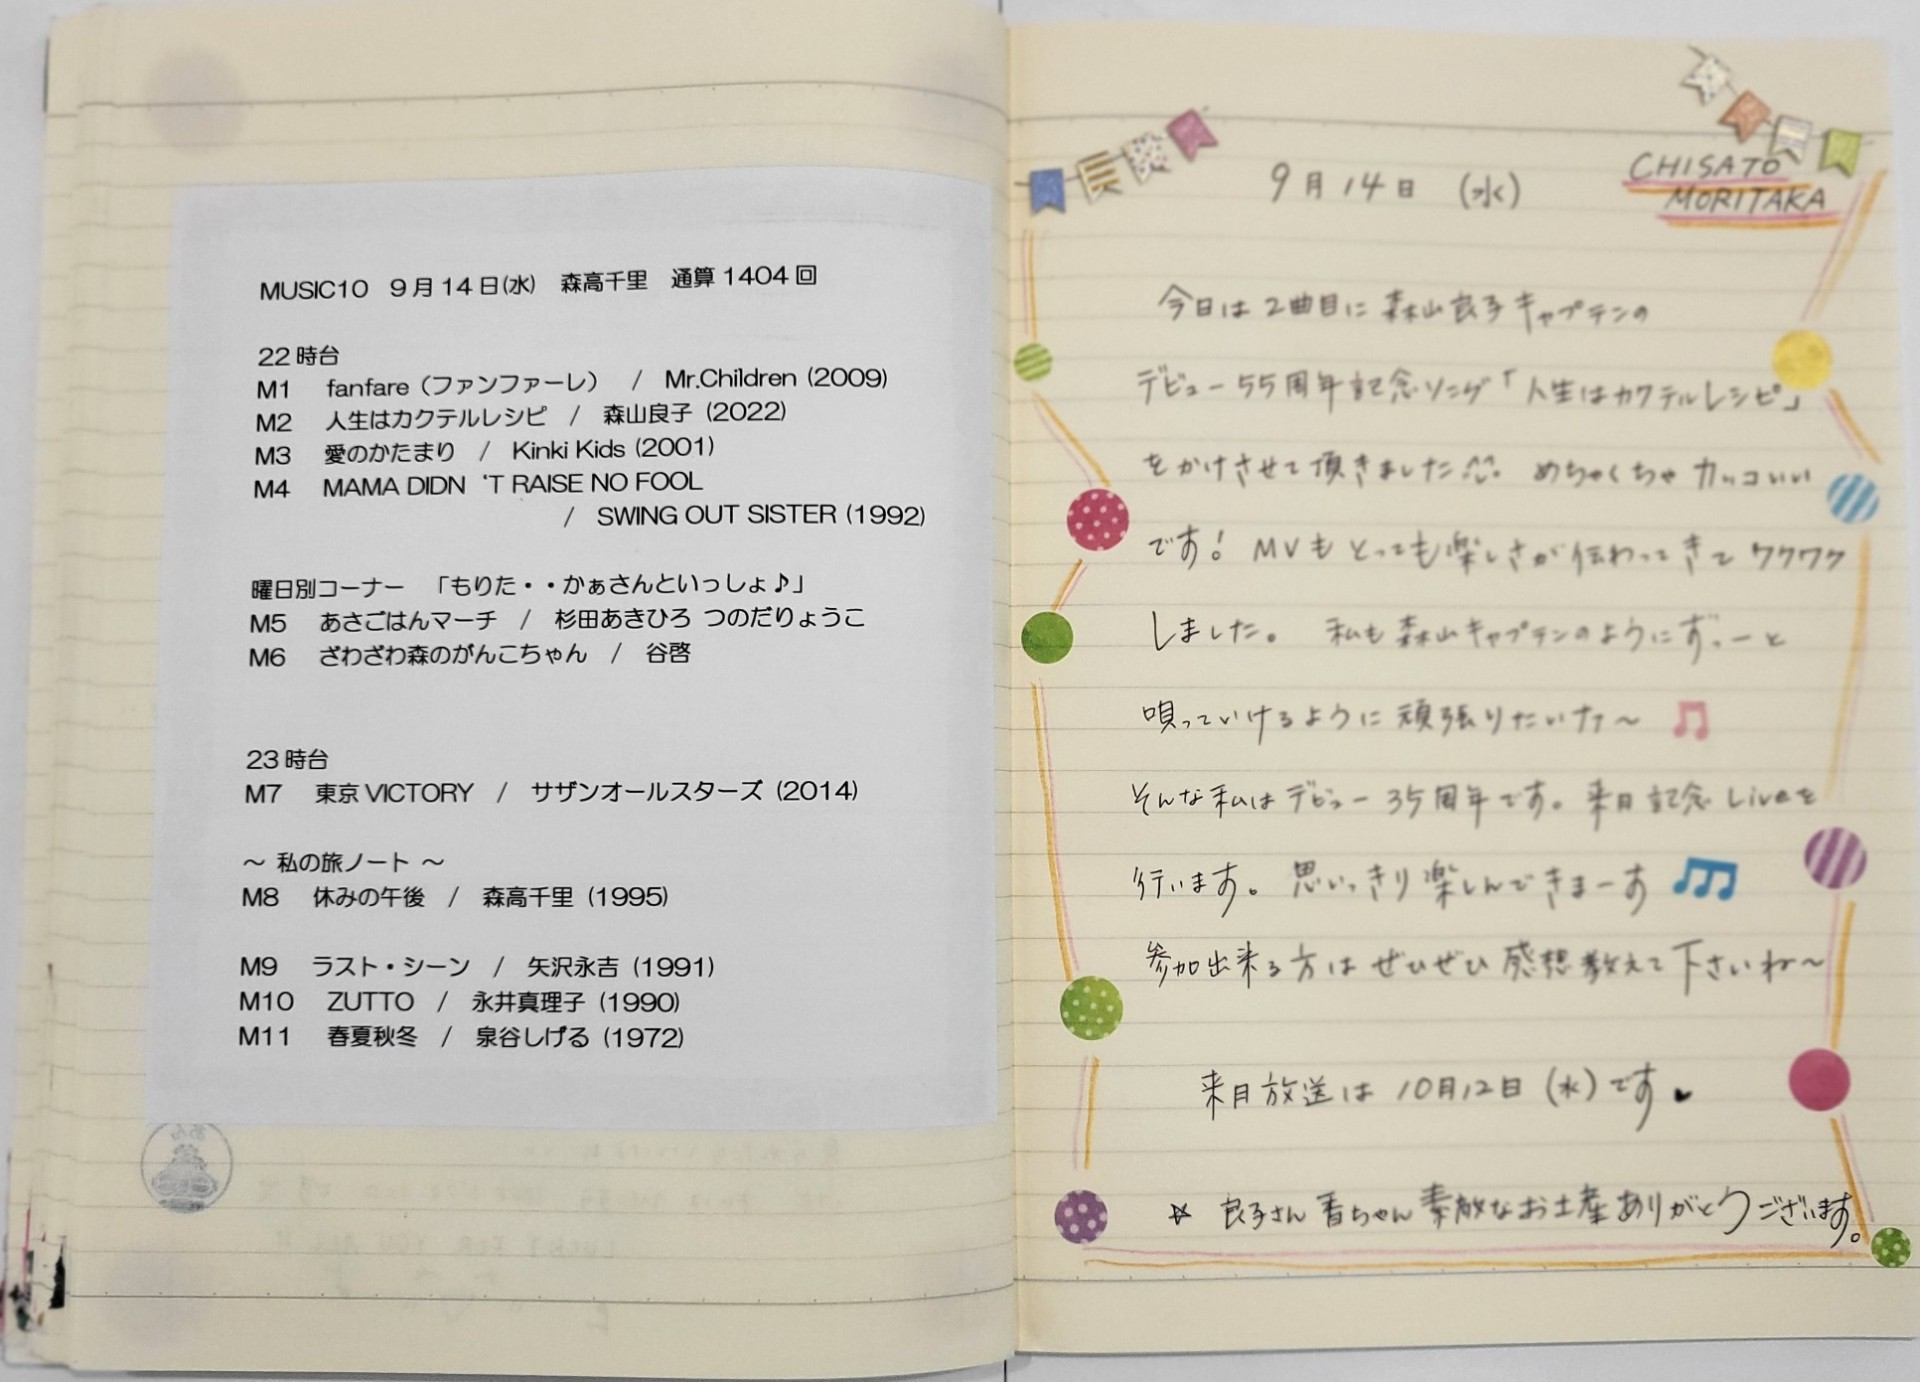 MUSIC10 9月14日(水) 森高千里 通算1404回
22時台
M1 fanfare（ファンファーレ） / Mr.Children (2009)
M2 人生はカクテルレシピ / 森山良子 (2022)
M3 愛のかたまり / Kinki Kids (2001)
M4 MAMA DIDN 'T RAISE NO FOOL
/ SWING OUT SISTER (1992)
曜日別コーナー 「もりた・・かぁさんといっしょ♪」
M5 あさごはんマーチ / 杉田あきひろ つのだりょうこ
M6 ざわざわ森のがんこちゃん / 谷啓
23時台
M7 東京VICTORY / サザンオールスターズ (2014)
～ 私の旅ノート ～
M8 休みの午後 / 森高千里 (1995)
M9 ラスト・シーン / 矢沢永吉 (1991)
M10 ZUTTO / 永井真理子 (1990)
M11 春夏秋冬 / 泉谷しげる (1972)
9月14日 (水)
CHISATO
MORITAKA
今日は2曲目に森山良子キャプテンの
デビュー55周年記念ソング「人生はカクテルレシピ」
をかけさせて頂きました♫。めちゃくちゃカッコいい
です! MVもとっても楽しさが伝わってきてワクワク
しました。 私も森山キャプテンのようにずっーと
唄っていけるように頑張りたいナァ～
そんな私はデビュー35周年です。来月記念Liveを
行います。思いっきり楽しんできまーす
参加出来る方はぜひぜひ感想教えて下さいね～
来月放送は10月12日(水)です♥
☆ 良子さん香ちゃん素敵なお土産ありがとうございます。